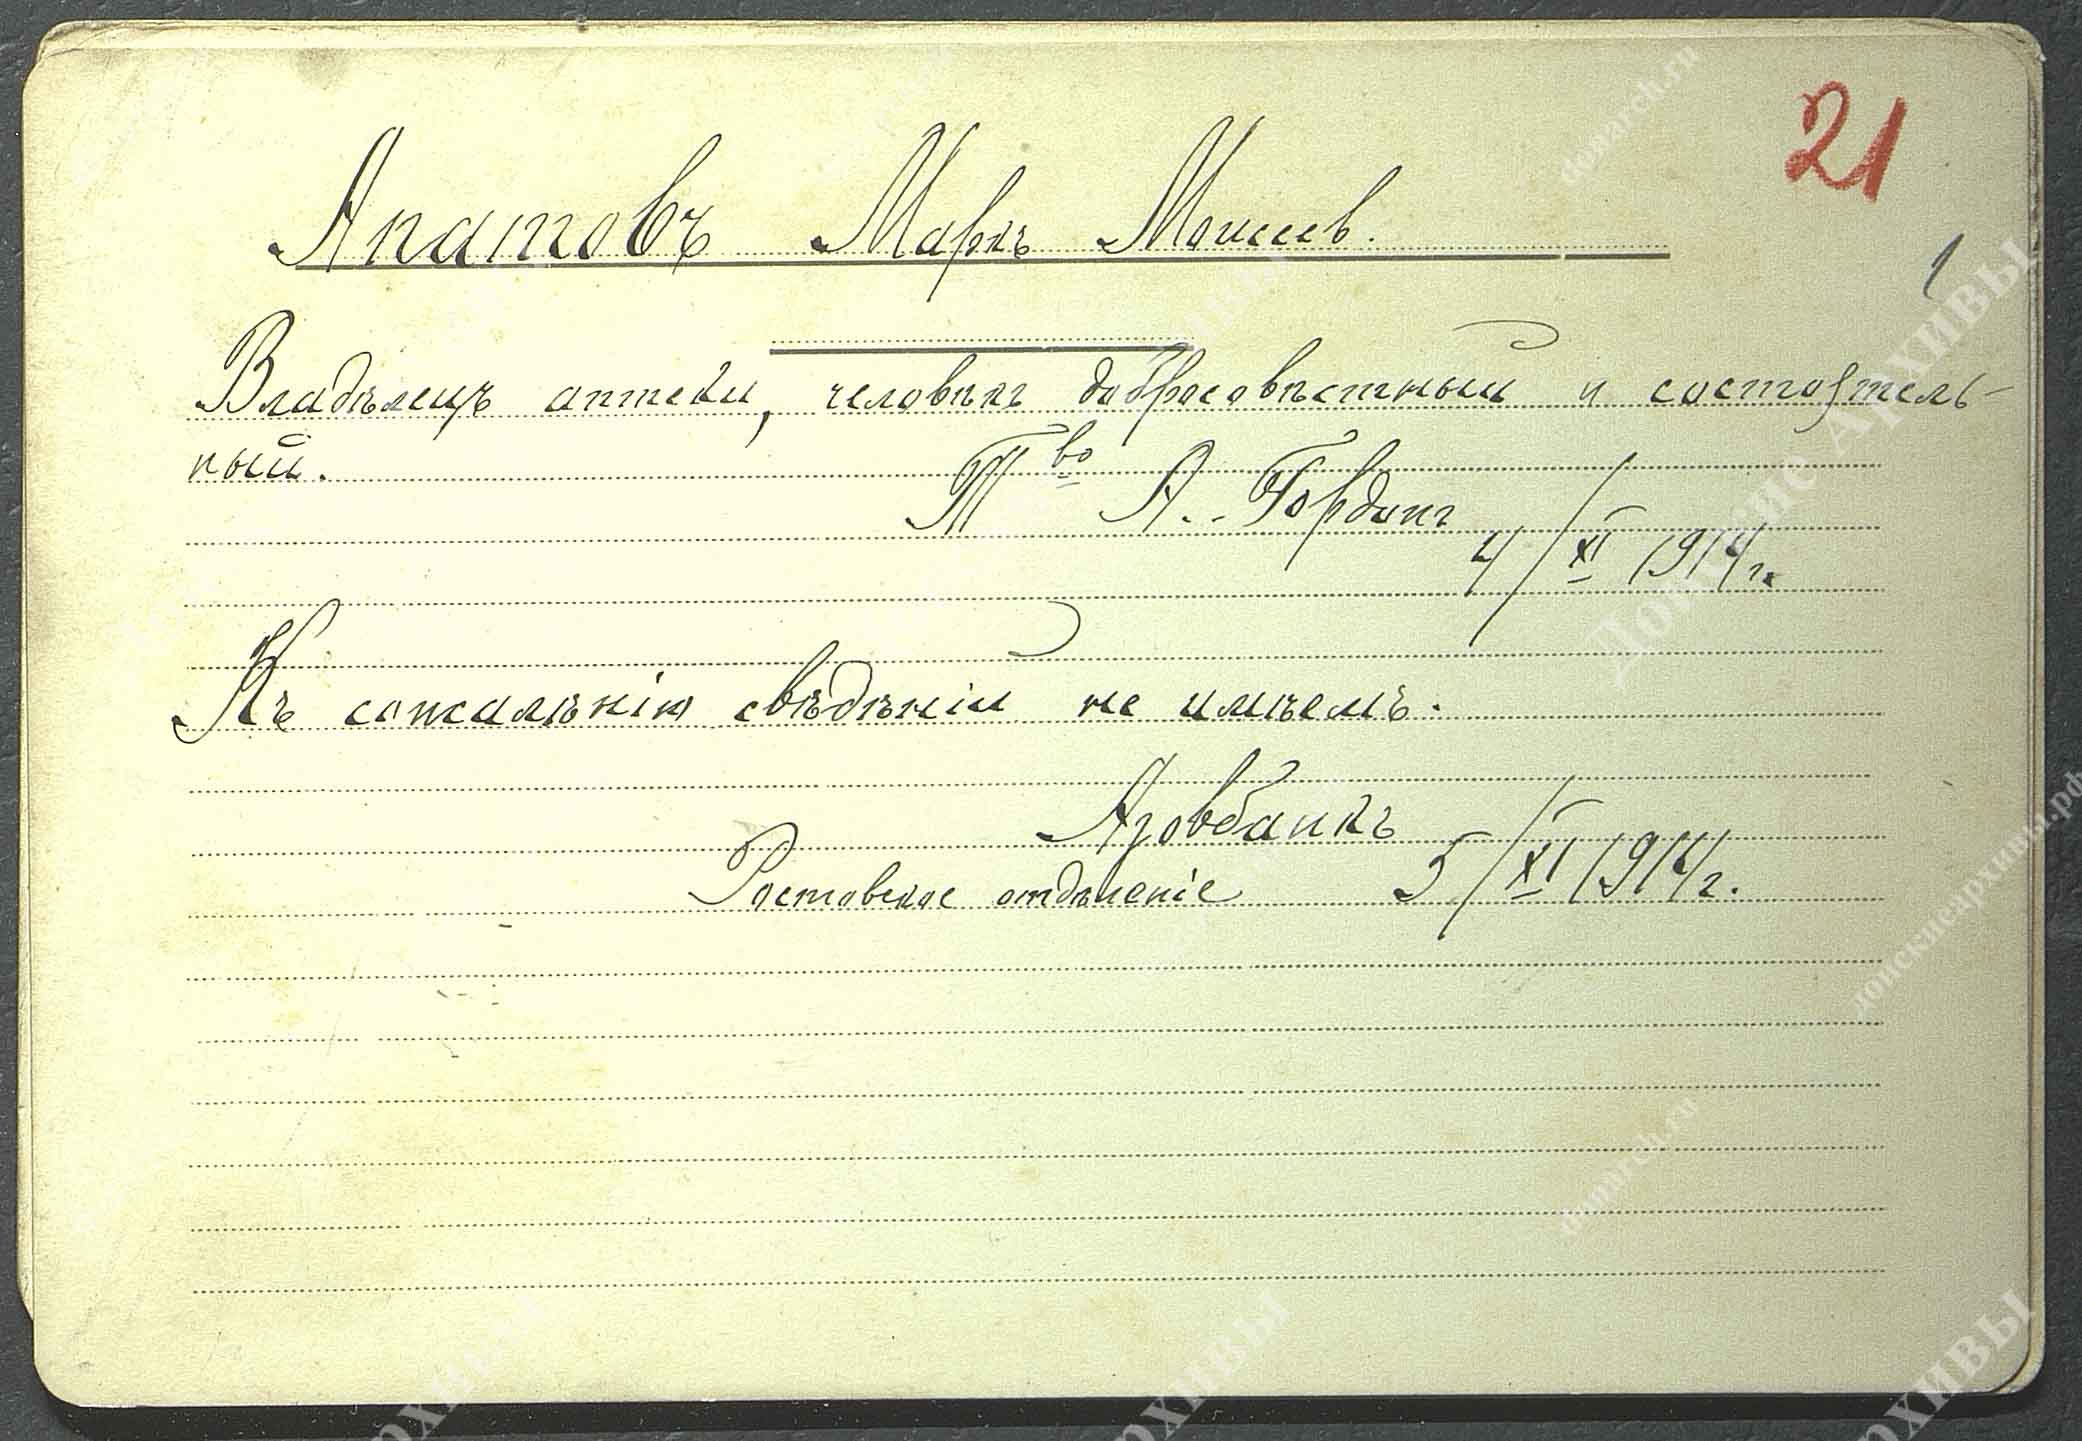 21
Апатовъ Маркъ Моисеев.
1
Владѣлецъ аптеки, человѣкъ добросовѣстный и состоятель-
ный.
Т во А. Гордонъ
4/XI 1914 г.
Къ сожалѣнію свѣдѣній не имѣемъ.
Азовбанкъ
Ростовское отдѣленіе 5/XI 1914 г.
Донские Архивы
donarch.ru
донскиеархивы.рф
donarch.ru